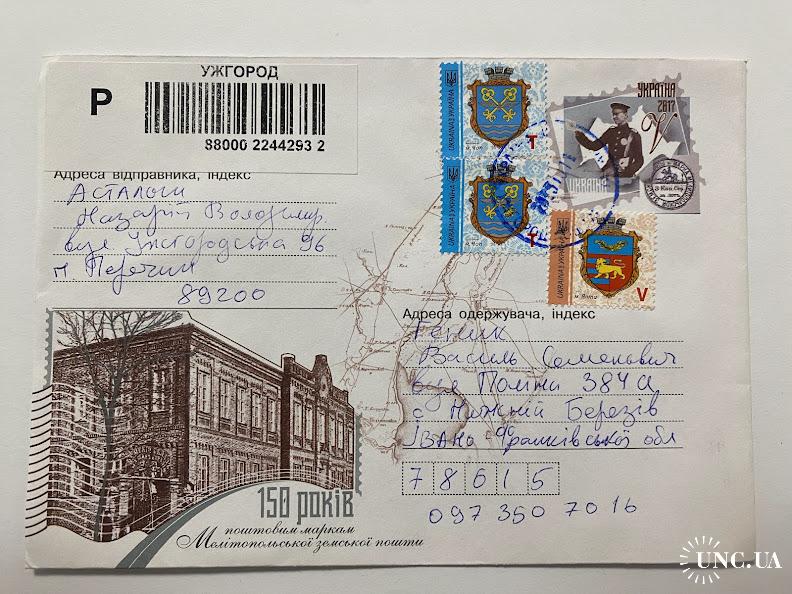 УЖГОРОД
P
88000 2244293 2
Адреса відправника, індекс
Асталош
Назарій Володимир.
вул. Ужгородська 96
м Перечин
89200
UKRAINA УКРАЇНА
T
UKRAINA УКРАЇНА
T
УКРАЇНА
2017
V
UKRAINA
UKRAINA УКРАЇНА
м. Ялта
V
Адреса одержувача, індекс
Геник
Василь Семенович
вул Поміки 384а
с Нижній Березів
Івано Франківської обл
78615
097 350 70 16
150 років
поштовим маркам
Мелітопольської земської пошти
UNC.UA